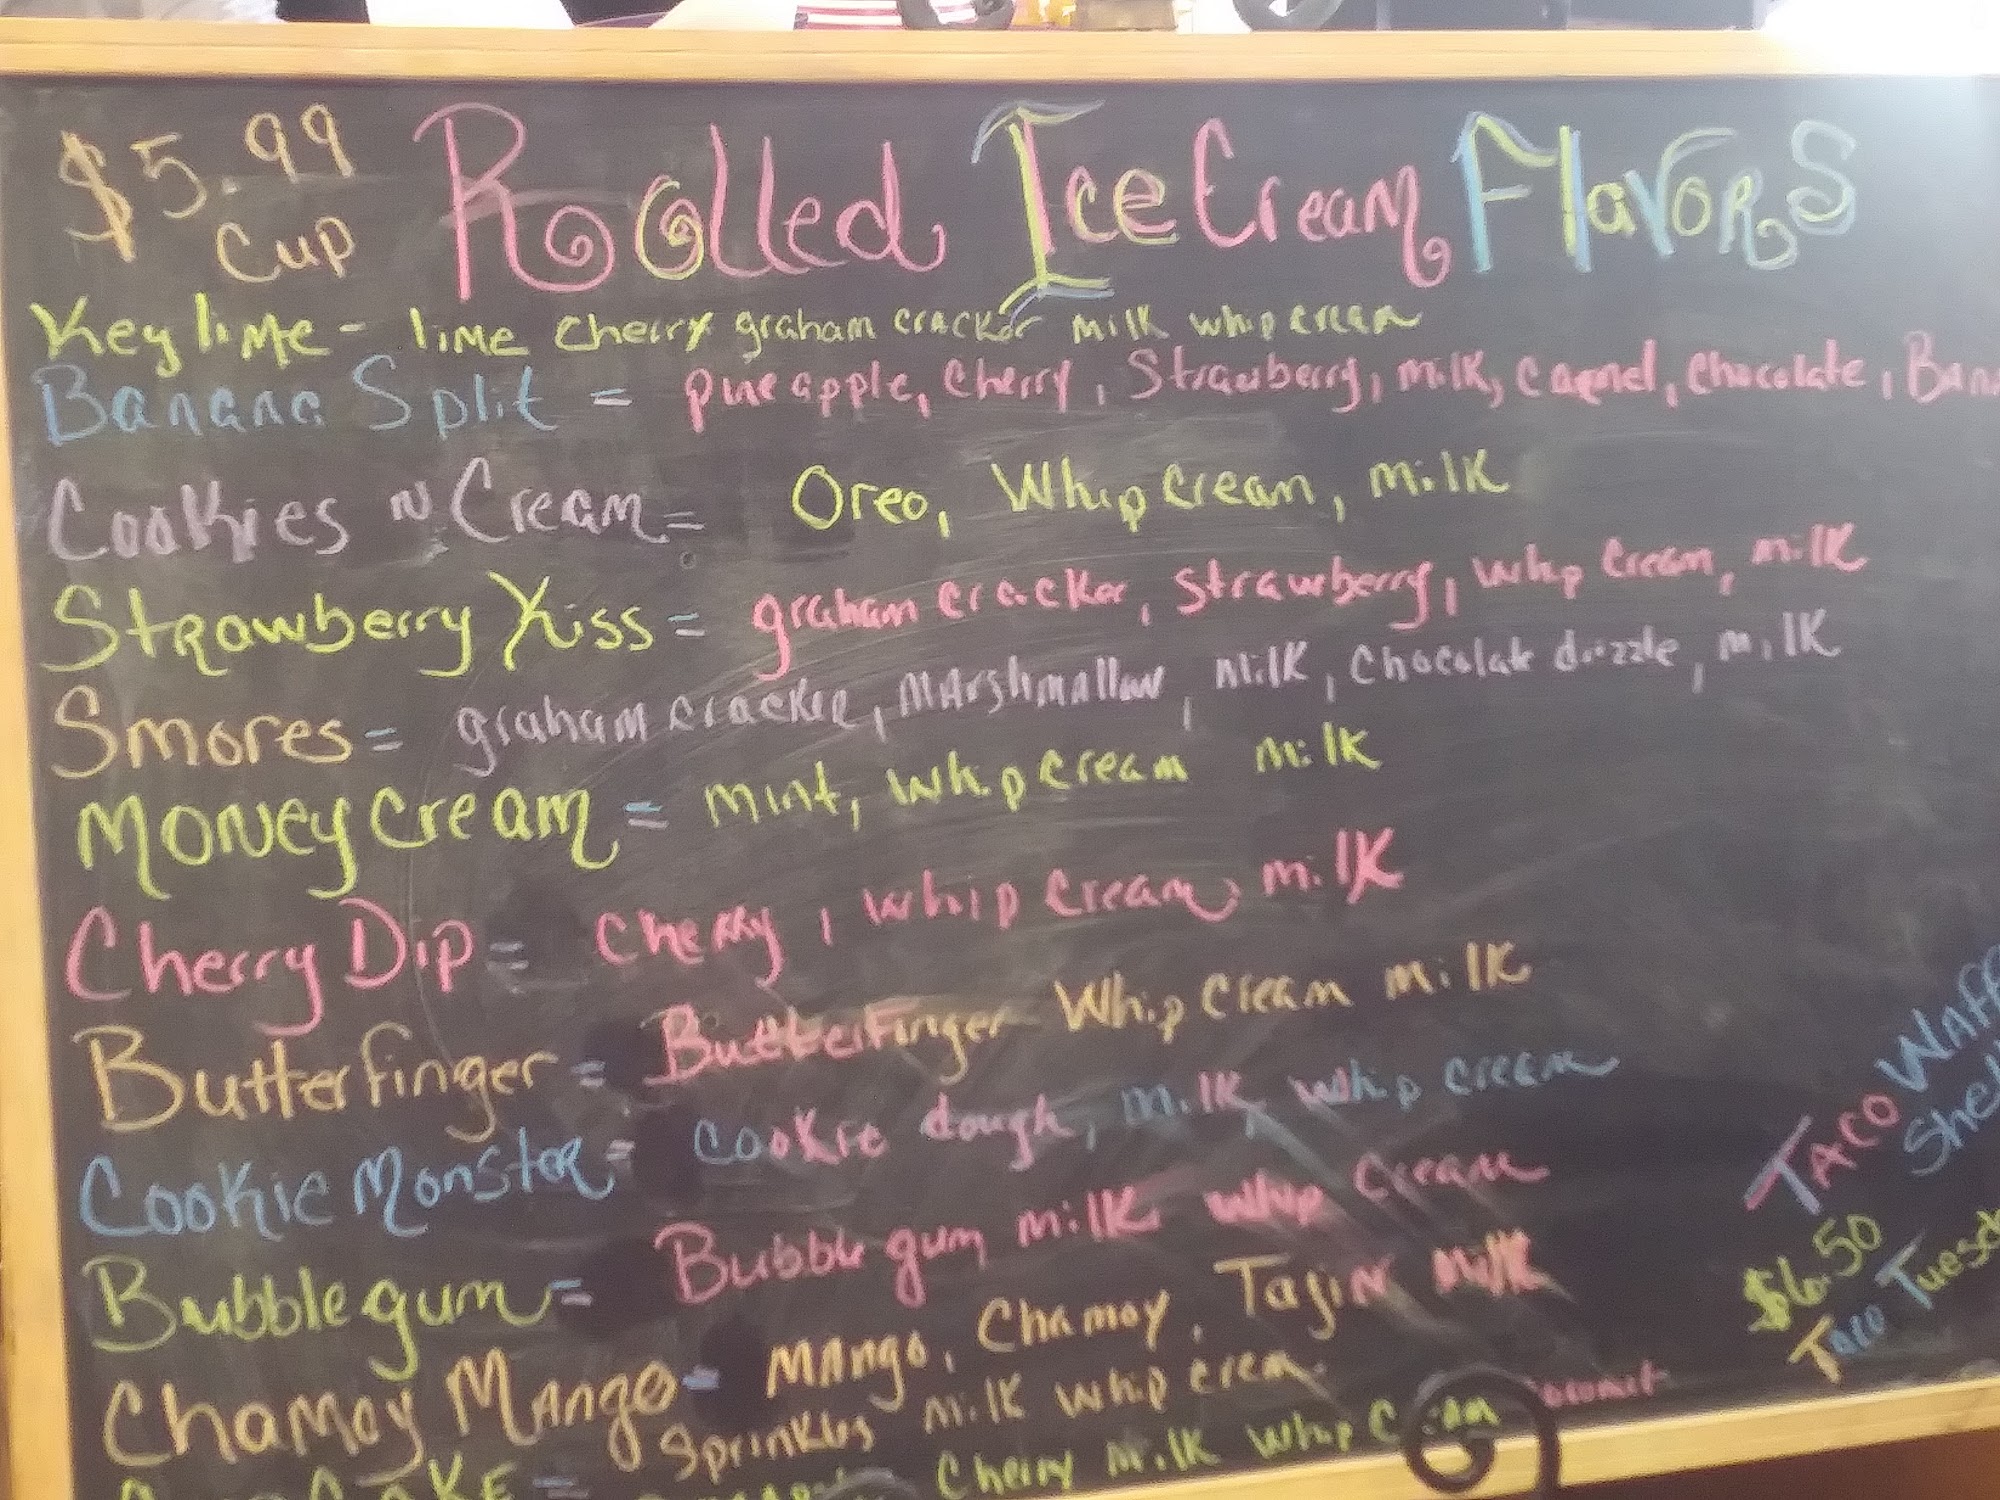 $5.99 Rolled Ice Cream Flavors
Cup
Key lime - lime cherry graham cracker milk whip cream
Banana Split = pineapple, cherry, Strawberry, milk, chocolate,
Cookies N Cream = Oreo, Whip cream, milk
Strawberry Kiss = graham cracker, strawberry, whip cream, milk
Smores = graham cracker, marshmallow, milk, chocolate drizzle, milk
Money cream = mint, whip cream milk
Cherry Dip = cherry, whip cream milk
Butterfinger = Butterfinger Whip cream milk
Cookie Monster = cookie dough, milk whip cream
Bubble gum = Bubble gum milk whip cream
Chamoy Mango - Mango, Chamoy, Tajin milk
Sprinkles milk whip cream
Cherry milk whip cream
Taco
$6.50
Taco